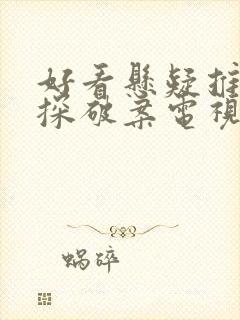 好看懸疑推
探破案電視
蝸碎